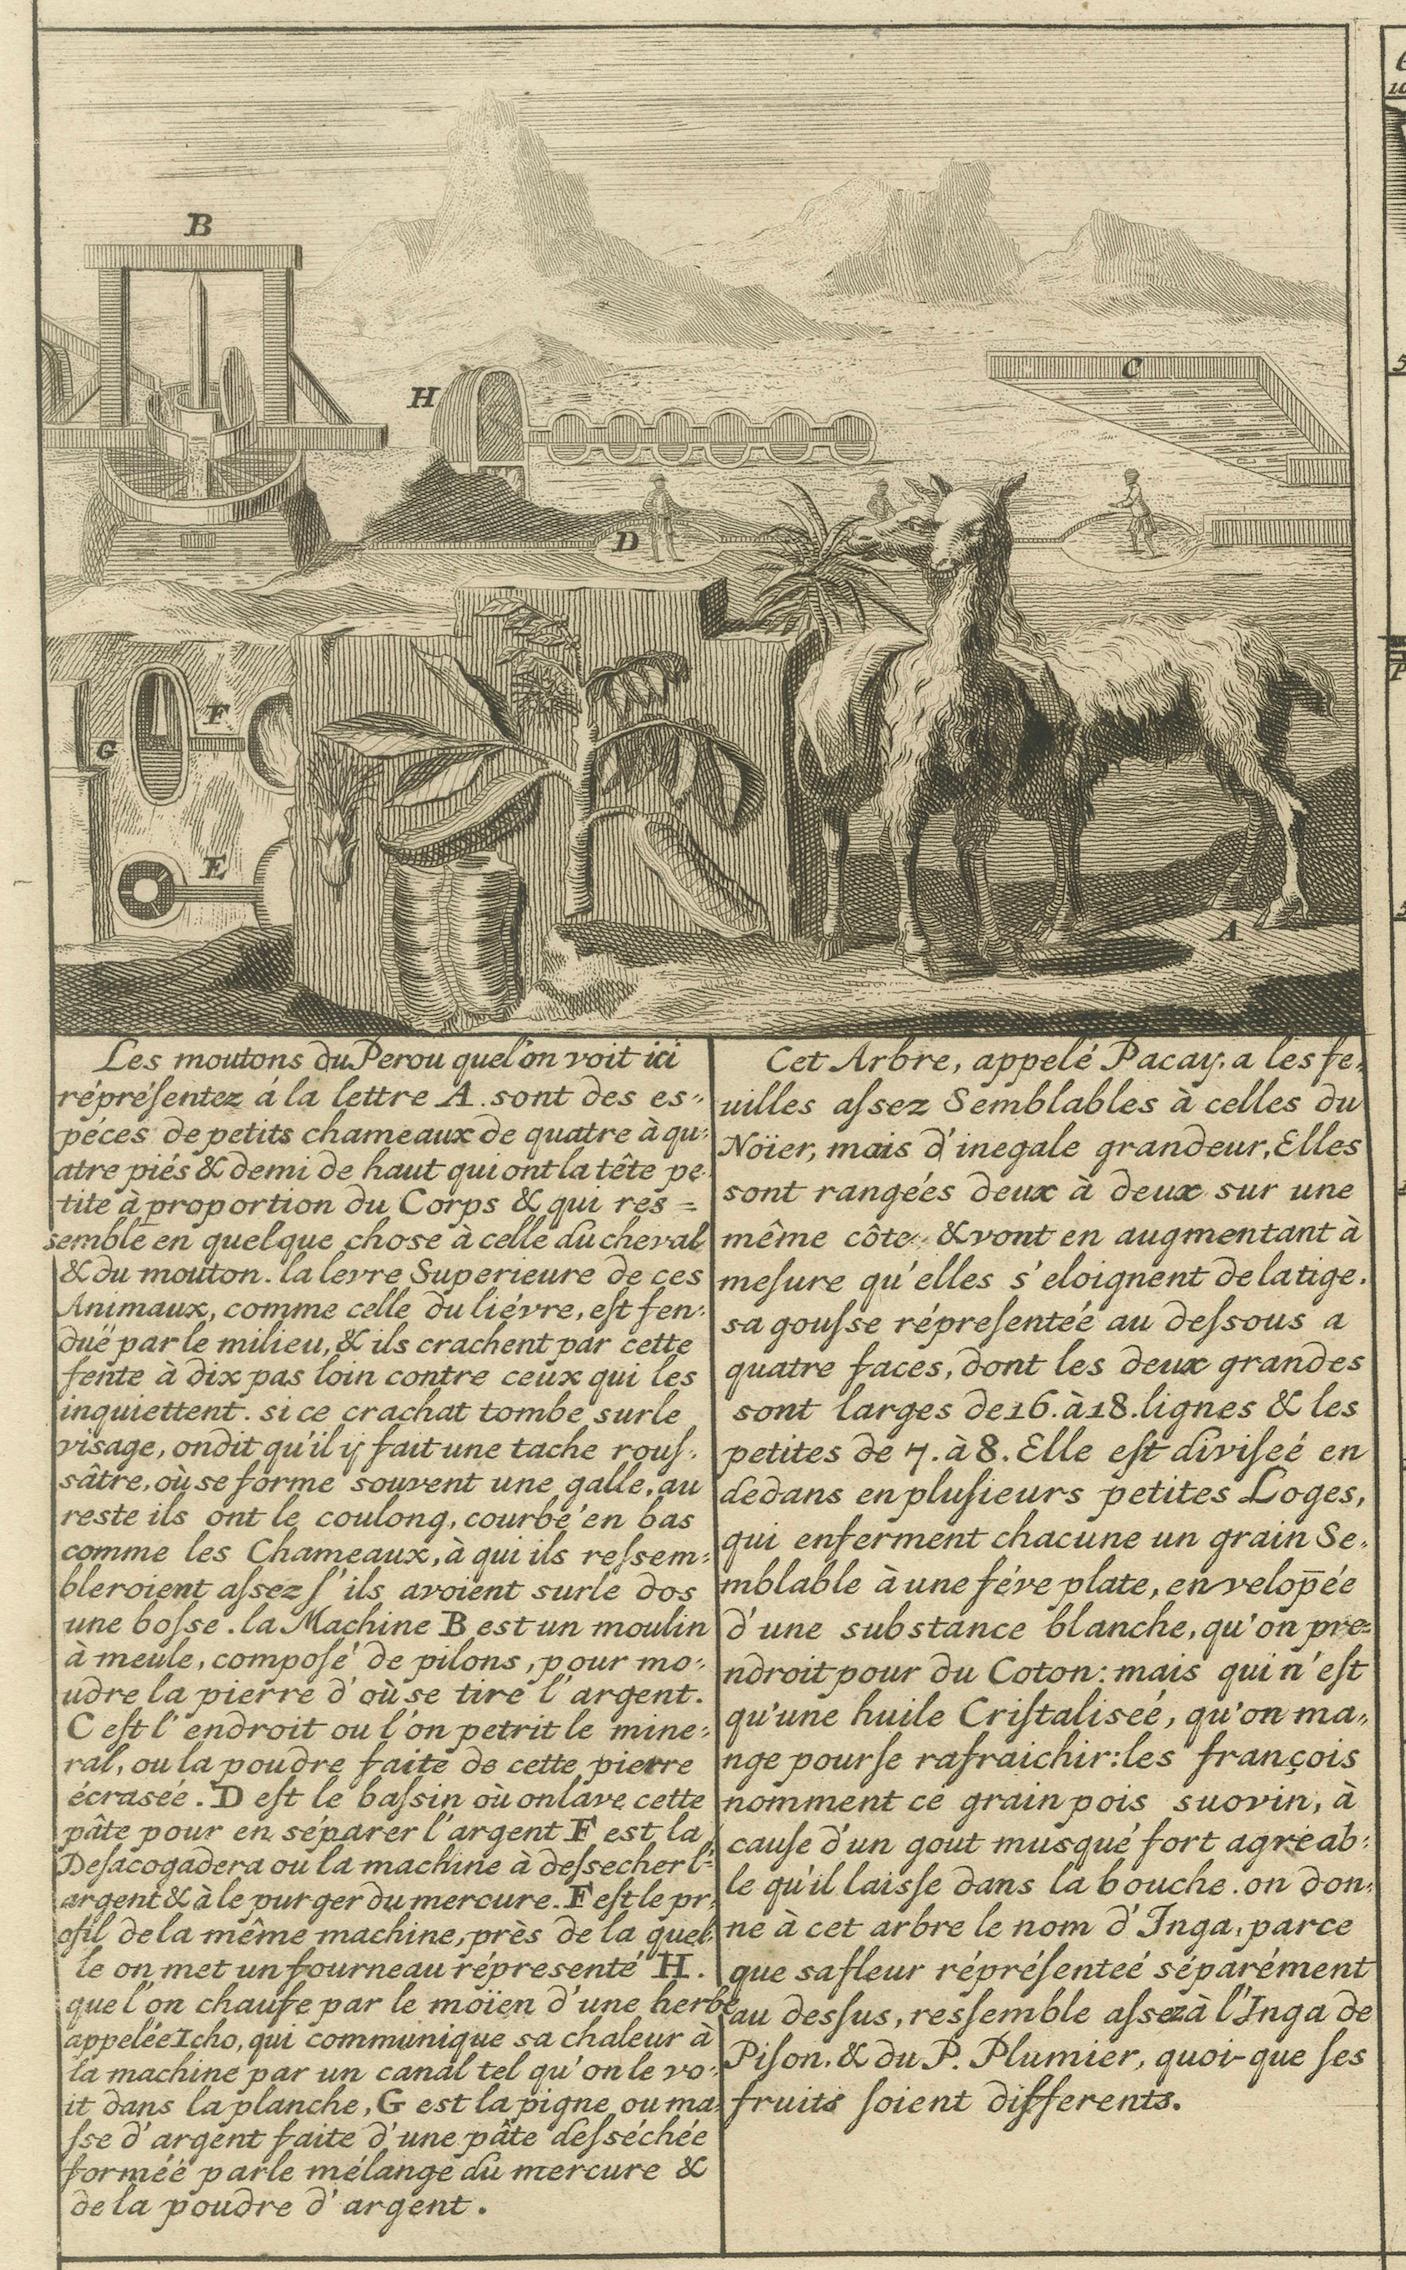 B
H
C
D
F
G
E
A
Les moutons du Perou que l'on voit ici
répréſentez á la lettre A. sont des es-
péces de petits chameaux de quatre à qu-
atre piés & demi de haut qui ont la tête pe-
tite à proportion du Corps & qui res=
semble en quelque chose à celle du cheval
& du mouton. la levre Superieure de ces
Animaux, comme celle du liévre, est fen-
duë par le milieu, & ils crachent par cette
fente à dix pas loin contre ceux qui les
inquiettent. si ce crachat tombe sur le
visage, on dit qu'il ij fait une tache rouſ-
sâtre, où se forme souvent une galle, au
reste ils ont le coulong, courbé en bas
comme les Chameaux, à qui ils reſsem-
bleroient aſsez ſ'ils avoient sur le dos
une boſse. la Machine B est un moulin
à meule, compoſé de pilons, pour mo-
udre la pierre d'où se tire l'argent.
C eſt l'endroit ou l'on petrit le mine-
ral, ou la poudre faite de cette pierre
écrasée. D eſt le baſsin où on lave cette
pâte pour en séparer l'argent F est la
Deſacogadera ou la machine à deſsecher l'-
argent & à le purger du mercure. F eſt le pr-
ofil de la même machine, près de la quel-
le on met un fourneau répresenté H.
que l'on chaufe par le moïen d'une herbe
appelée Icho, qui communique sa chaleur à
la machine par un canal tel qu'on le vo-
it dans la planche, G est la pigne ou ma-
ſse d'argent faite d'une pâte deſséchée
forméé par le mélange du mercure &
de la poudre d'argent.
Cet Arbre, appelé Pacay, a les fe-
uilles aſsez Semblables à celles du
Noïer, mais d'inegale grandeur, Elles
sont rangéés deux à deux sur une
même côte & vont en augmentant à
meſure qu'elles s'eloignent de la tige.
sa gouſse répreſentéé au deſsous a
quatre faces, dont les deux grandes
sont larges de 16. à 18. lignes & les
petites de 7. à 8. Elle eſt diviſeé en
dedans en pluſieurs petites Loges,
qui enferment chacune un grain Se-
mblable à une féve plate, envelop̄ée
d'une substance blanche, qu'on pre=
ndroit pour du Coton: mais qui n'eſt
qu'une huile Criſtaliseé, qu'on ma-
nge pour ſe rafraichir: les françois
nomment ce grain pois suovin, à
cauſe d'un gout musqué fort agréab-
le qu'il laiſse dans la bouche. on don-
ne à cet arbre le nom d'Inga, parce
que sa fleur répréſenteé séparément
au deſsus, reſsemble aſsez à l'Inga de
Piſon. & du P. Plumier, quoi-que ſes
fruits ſoient differents.